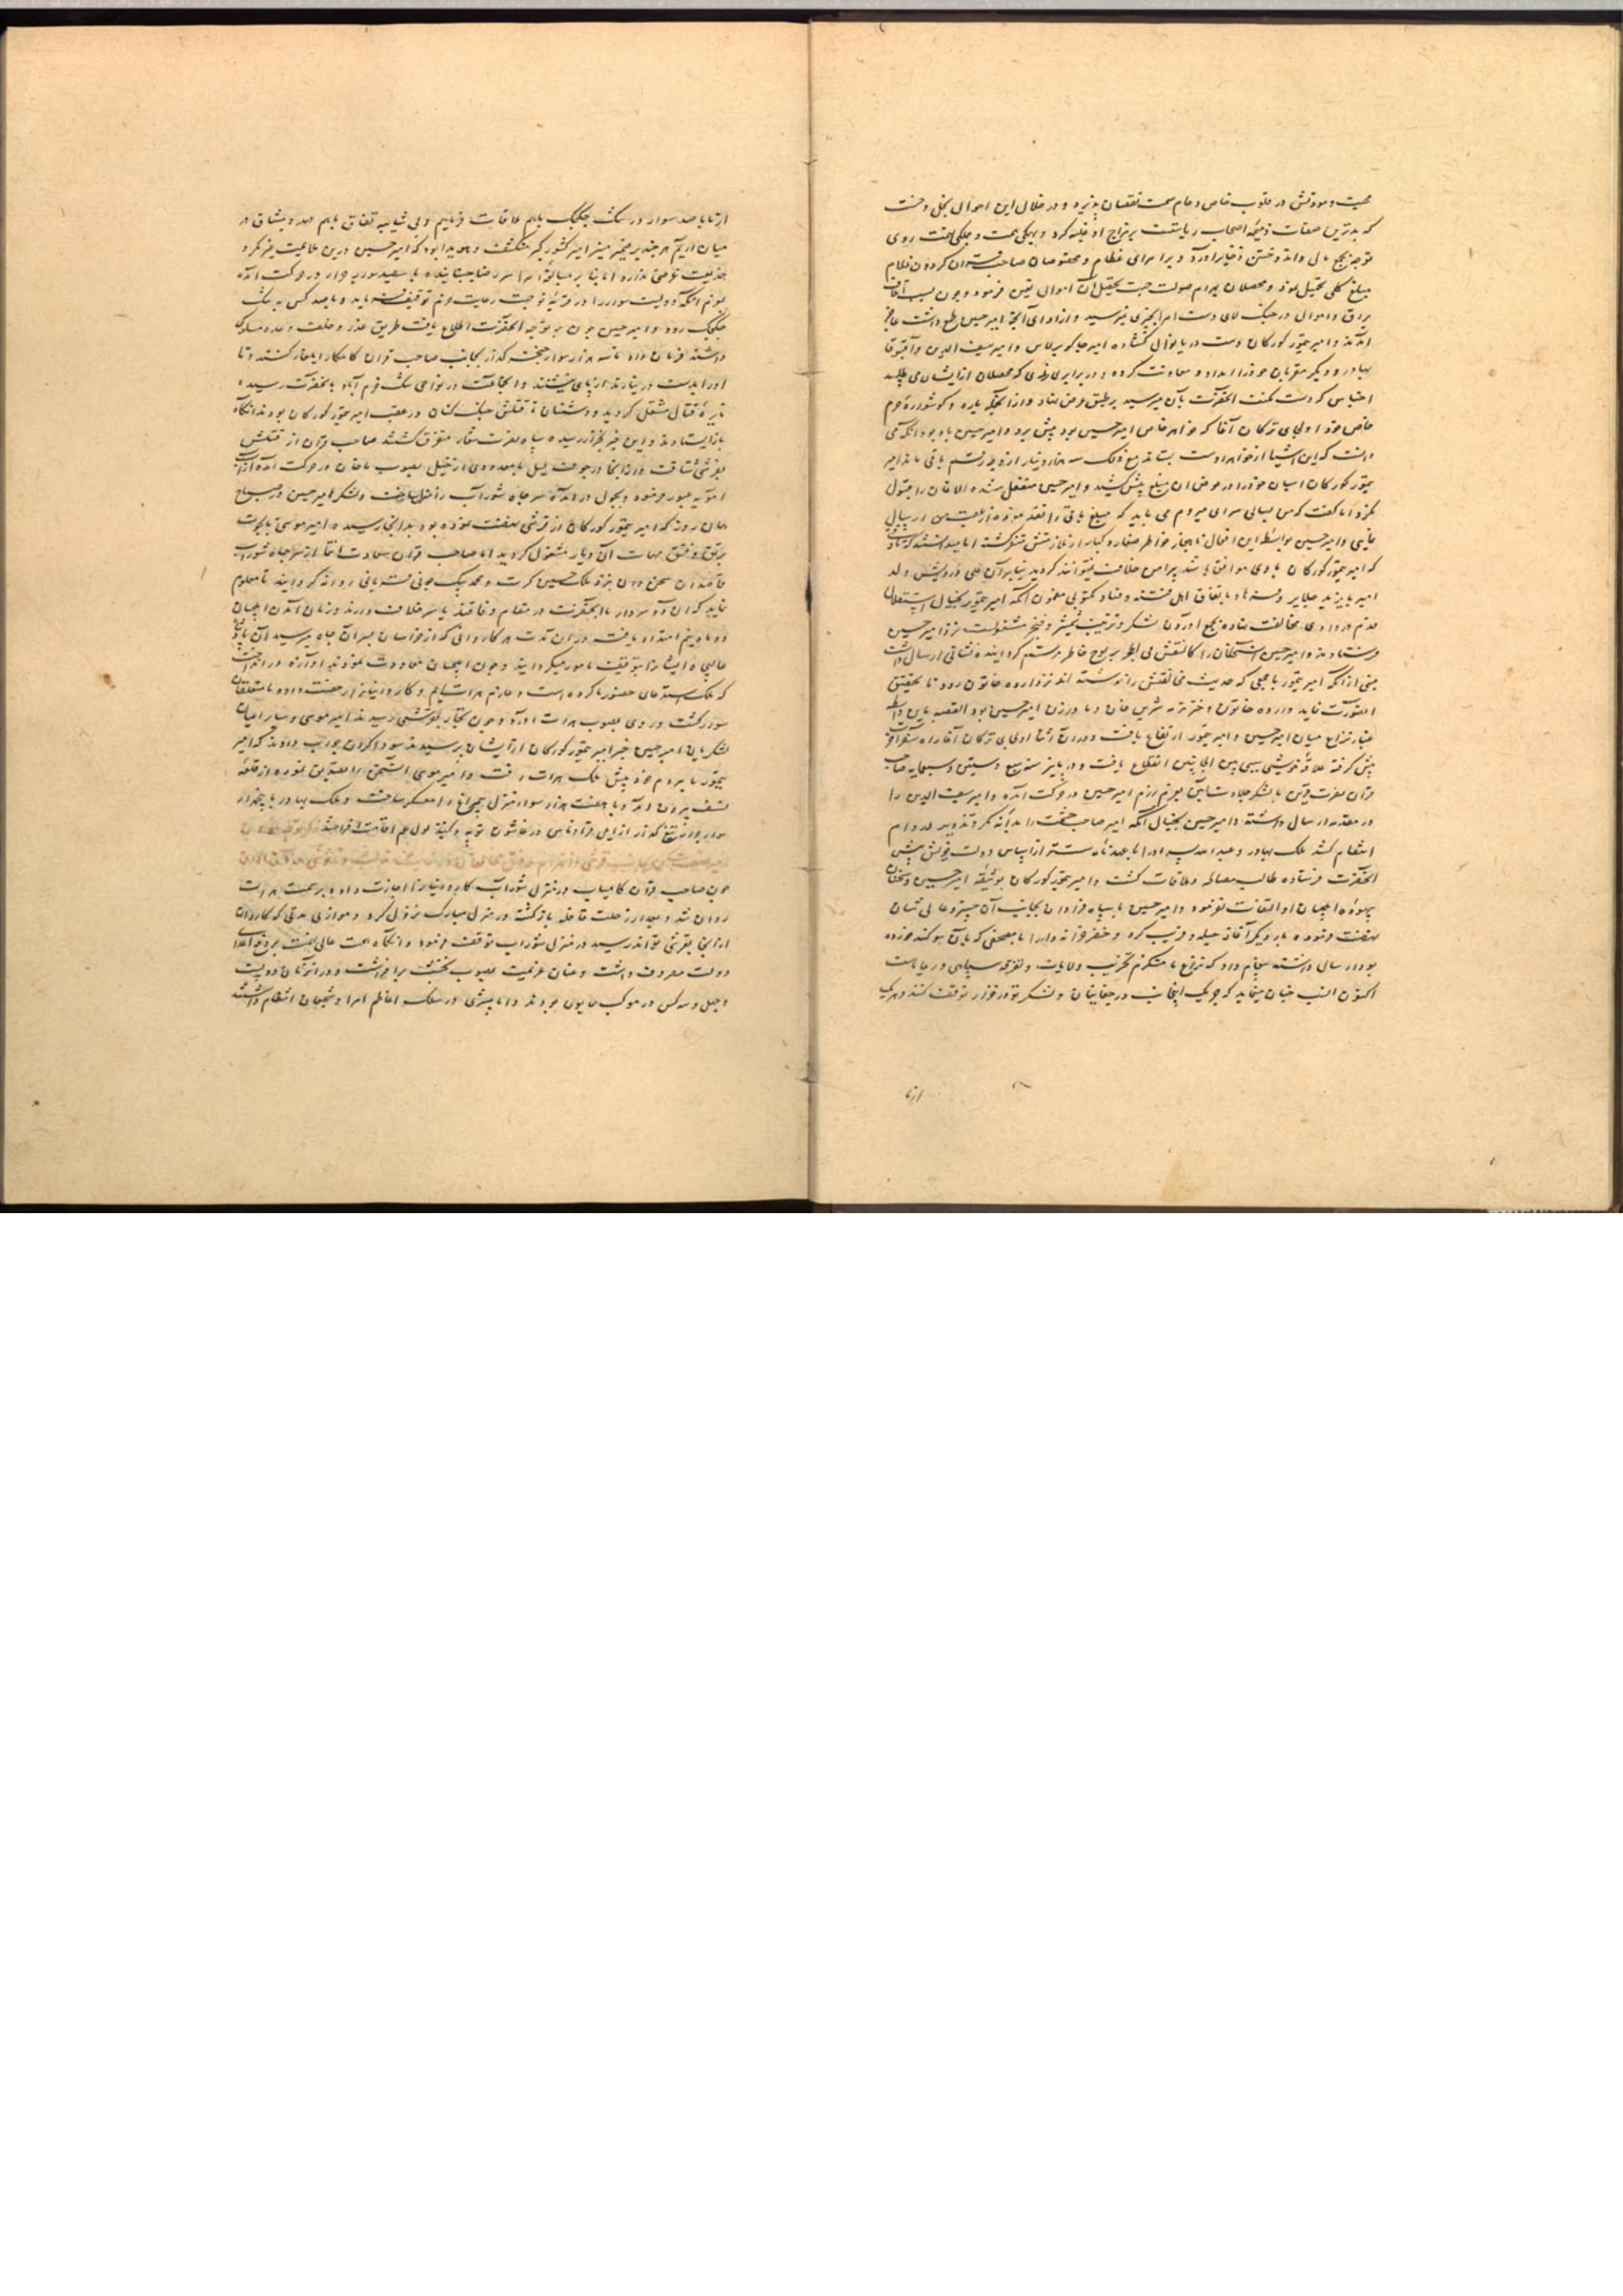 محبت و مودتش در قلوب خاص و عام سمت نقصان پذیرد و در خلال این احوال بخل و خست
که بدترین صفات ذمیمه اصحاب ریاست بر مزاج او غلبه کرد و بهمگی همت و جملگی نهمت روی
توجه بجمع مال و اندوختن ذخایر آورد و بر امرای عظام و مخصوصان صاحب قران گردون غلام
مبلغ کلی تحمیل نمود و محصلان بهرام صولت جهت تحصیل آن اموال تعین فرمود و چون بسبب آنکه
یراق و اموال در جنک لای دست امرا بچیزی نمیرسید و از ادای آنچه امیر حسین طمع داشت عاجز
آمدند و امیر تیمور کورکان دست دریا نوال گشاده امیر جاکو برلاس و امیر سیف الدین و آقبوقا
بهادر و دیگر مقربان خود را امداد و معاونت کرده و در برابر زری که محصلان از ایشان می طلبید
اجناس که دست همت آنحضرت بآن میرسید بر طبق عرض نهاد و از آنجمله یاره و گوشواره حرم
خاص خود اولجای ترکان آغا که خواهر خاص امیر حسین بود پیش برد و امیر حسین با وجود آنکه می
دانست که این اشیا از خواهر اوست بستاند مع ذلک سه هزار دینار از وجه رستم باقی ماند امیر
تیمور کورکان اسبان خود را در عوض آن مبلغ پیش کشید و امیر حسین منفعل شده الاغان را قبول
نکرد اما گفت که من بسالی سرای میروم می باید که مبلغ باقی را نقد نموده از عقب من ارسال
نمایی و امیر حسین بواسطه این افعال ناهنجار خواطر صغار و کبار از ملازمتش متنفر گشته اما میدانستند که تا
که امیر تیمور کورکان با وی موافق باشد پیرامن خلافت نمیتوانند گردید بنابر آن علی درویش ولد
امیر بایزید جلایر و باتفاق اهل فتنه و فساد مکتوبی مضمون آنکه امیر تیمور بخیال استقلال
قدم در وادی مخالفت نهاده بجمع آوردن لشکر و ترتیب شمشیر و خنجر مشغولست نزد امیر حسین
فرستادند و امیر حسین آن سخنان را کالنقش فی الحجر بر لوح خاطر مرتسم گردانیده نشانی ارسال داشت
مبنی از آنکه امیر تیمور با جمعی که حدیث مخالفتش را نوشته اند نزد اردو خاتون رود تا تحقیق
آنصورت نماید و اردو خاتون دختر ترمه شرین خان و مادر زن امیر حسین بود القصه باین واسطه
غبار نزاع میان امیر حسین و امیر تیمور ارتفاع یافت و در آن اثنا اولجای ترکان آغا راه سفر آخرت
پیش گرفته علاقه خویشی بین الجانبین انقطاع یافت و در پاییز سنه سبع و ستین و سبعمایه صاحب
قران نصرت قرین با لشکر جلادت آیین بعزم رزم امیر حسین در حرکت آمده و امیر سیف الدین را
در مقدمه ارسال داشته و امیر حسین بخیال آنکه امیر صاحب شوکت را بدانه مکر و تزویر در دام
انتقام کشد ملک بهادر و عبدالله پسر او را با عهدنامه مستتر از اساس دولت خویش پیش
آنحضرت فرستاده طالب مصالحه و ملاقات گشت و امیر تیمور کورکان بوثیقه امیر حسین و سخنان
بیهوده ایلچیان او التفات ننمود و امیر حسین با سپاه فراوان بجانب آن خسرو عالی شان
نهضت فرموده بار دیگر آغاز حیله و فریب کرد و خضر خزانه دار را با مصحفی که بآن سوگند خورده
بود ارسال داشته پیغام داد که نزاع ما مستلزم تخریب ولایات و تفرقه سپاهی و رعایاست
اکنون انسب چنان مینماید که چریک اینجانب در چغانیان و لشکر تو در خزار توقف کنند و هریک
از ما
از ما با صد سوار در تنک چکچک باهم ملاقات فرماییم و بی شایبه نفاق باهم عهد و میثاق در
میان اریم هر چند بر ضمیر منیر امیر کشورگیر منکشف و هویدا بود که امیر حسین درین ملاعبت غیر مکر و
خدیعت غرضی ندارد اما بنا بر مبالغه امرا سر رضا جنبانیده با سیصد سوار جرار در حرکت آمد
بعزم آنکه دویست سوار را در قریه نوجهت رعایت حزم توقیف فرماید و با صد کس به تنک
چکچک رود و امیر حسین چون بر توجه آنحضرت اطلاع یافت طریق عذر و خلف وعده مسلوک
داشته فرمان داد تا سه هزار سوار خنجر گذار بجانب صاحب قران کامکار ایلغار کنند و تا
او را بدست در نیارند از پای ننشینند و آنجماعت در نواحی تنک خرم آباد بآنحضرت رسیده
نایره قتال مشتعل گردید و دشمنان تا قتلش جنک کنان در عقب امیر تیمور کورکان بودند آنگاه
باز ایستادند و این خبر بخزار رسیده سپاه نصرت شعار متفرق گشتند صاحب قران از قتلش
بقرشی شتافت و از آنجا در جوف لیل با معدودی از خیل بصوب ماخان در حرکت آمده از آب
امویه عبور فرمود و بچول در آمده سر چاه شوراب را منزل ساخت و لشکر امیر حسین در صباح
همان روز که امیر تیمور کورکان از قرشی نهضت نموده بود بدانجا رسیده امیر موسی بابجهت
برتق و فتق مهمات آن دیار مشغول گردید اما صاحب قران سعادت انتما از سر چاه شوراب
قاصدان سخن دان نزد ملک حسین کرت و محمد بیک جونی قربانی روانه گردانید تا معلوم
نماید که آن دو سردار با آنحضرت در مقام وفاقند یا سر خلاف دارند و زمان آمدن ایلچیان
دو ماه و نیم امتداد یافت در آن مدت هر کاروانی که از خراسان بسر آن چاه میرسید
عالیجاه ایشان را بتوقیف مامور میگردانید و چون ایلچیان معاودت نمودند آوازه در انداخت
که ملک استدعای حضور ما کرده است و عازم هراتیم و کاروانیان را رخصت داده با متعلقان
سوار گشت و روی بصوب هرات آورد و چون تجار بقرشی رسیدند امیر موسی و سایر اعیان
لشکریان امیر حسین خبر امیر تیمور کورکان از ایشان پرسیدند سوداگران جواب دادند که امیر
تیمور با مردم خود پیش ملک هرات رفت و امیر موسی آن سخن را تصدیق نموده از قلعه
نسف بیرون آمد و با هفت هزار سوار منزل را معسکر ساخت و ملک بهادر با پنجهزار
چون صاحب قران کامیاب در منزل شوراب کاروانیان را اجازت داده بر سمت هرات
روان شد و بعد از رحلت قافله باز گشته در منزل مبارک نزول کرد و موازی مدتی که کاروان
از آنجا بقرشی تواند رسید در منزل شوراب توقف فرمود و آنگاه همت عالی نهمت بر دفع اعدا
دولت مصروف داشت و عنان عزیمت بصوب نخشب برافراشت و در آنزمان دویست
و چهل و سه کس در موکب همایون بودند و اما بیشتری در سلک اعاظم امرا و شجعان انتظام داشتند